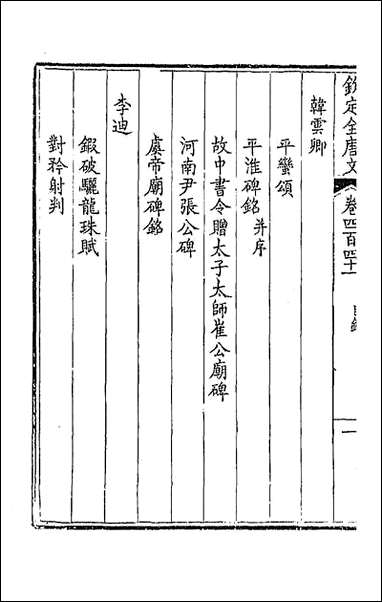 欽定全唐文 卷四百四十一 目錄 一
韓雲卿
平蠻頌
平淮碑銘并序
故中書令贈太子太師崔公廟碑
河南尹張公碑
虞帝廟碑銘
李迪
鍜破驪龍珠賦
對矜射判